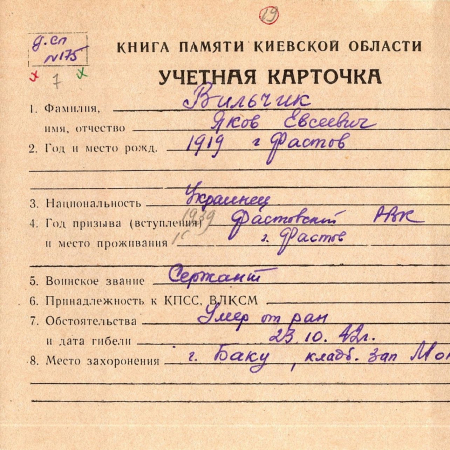 19
д.сп
№175
7
КНИГА ПАМЯТИ КИЕВСКОЙ ОБЛАСТИ
УЧЕТНАЯ КАРТОЧКА
1. Фамилия, Вильчик
имя, отчество Яков Евсеевич
2. Год и место рожд. 1919 г Фастов
3. Национальность Украинец
4. Год призыва (вступления) 1939 Фастовский РВК
и место проживания г. Фастов
5. Воинское звание Сержант
6. Принадлежность к КПСС, ВЛКСМ
7. Обстоятельства Умер от ран
и дата гибели 23.10.42г.
8. Место захоронения г. Баку, кладб. зап